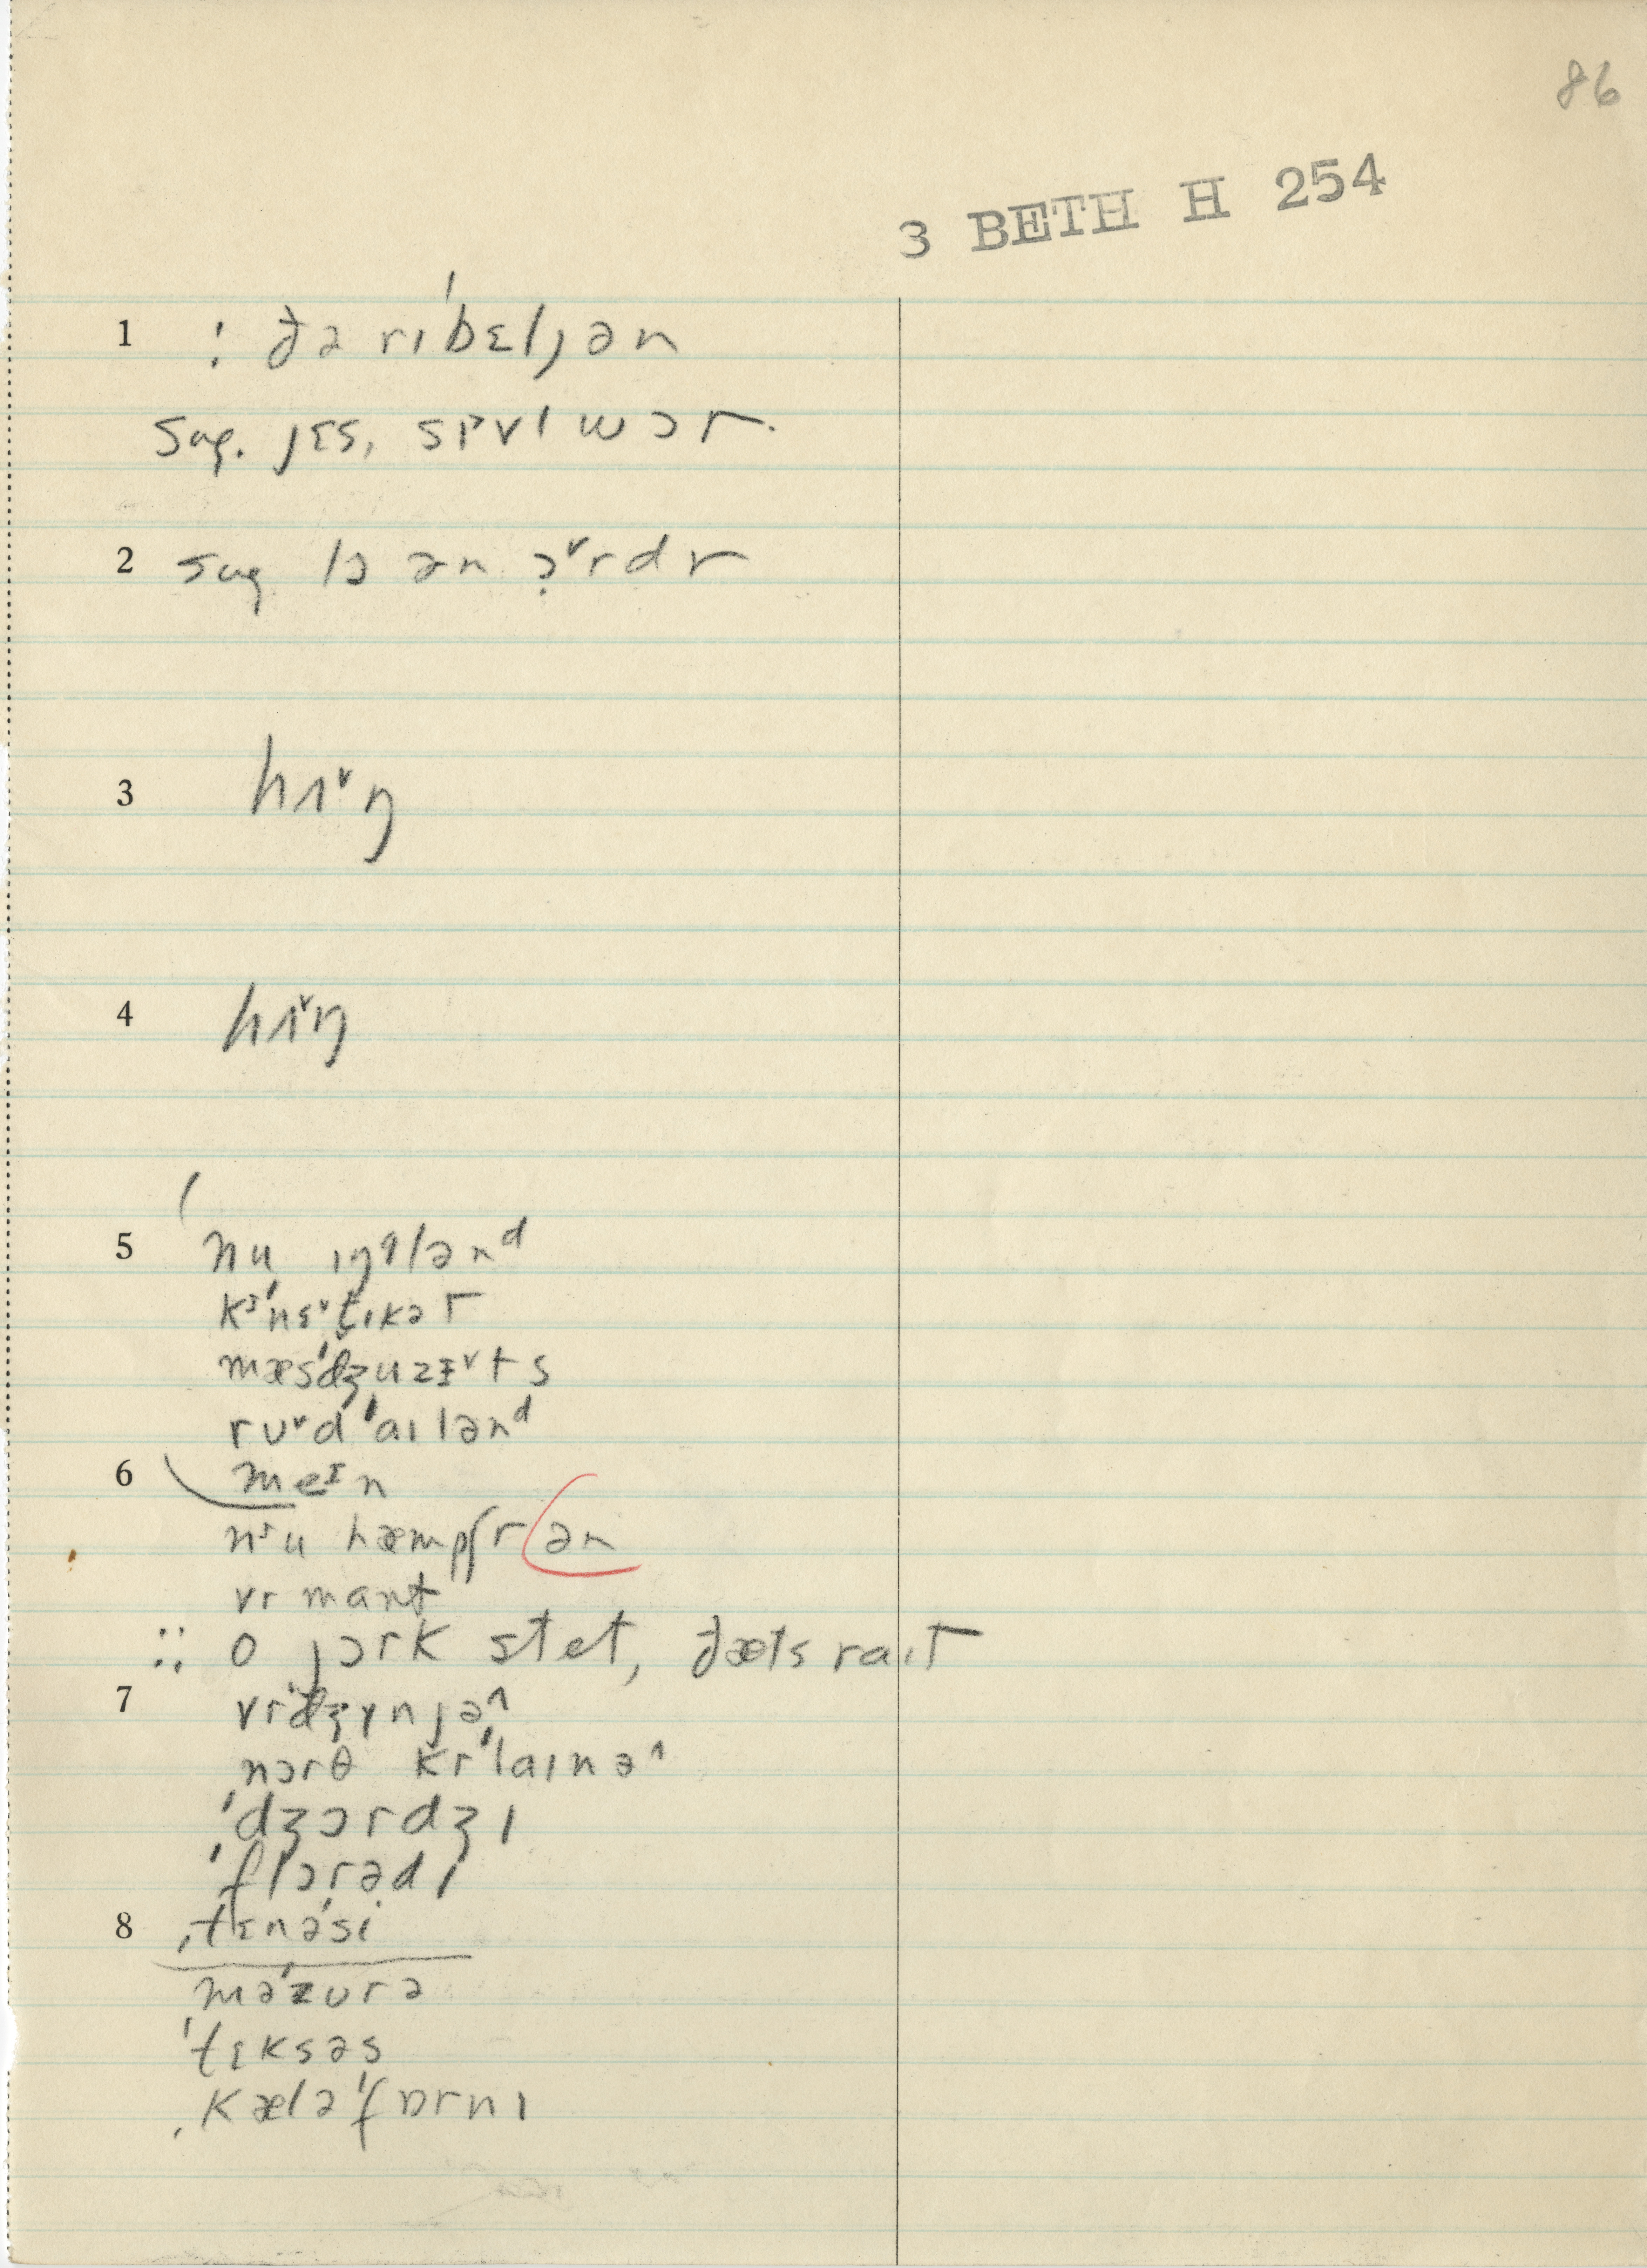 86
3 BETH H 254
1 : ðə rɪˈbɛljən
sug. jɛs, sɪvl wɔr.
2 sug lɔ ən ɔ̣˅rdr
3 hʌ˅ŋ
4 hʌ˅ŋ
5 nu ɪŋglənᵈ
kəˈnɛ˅t̬ɪkət
mæsˈdʒuzɛ˅ts
rʊ˅dˈaɪlənᵈ
6 meᴵn
nᶾu hæmpʃr(ən
vrmant
:: o jɔrk stet, ðæts raɪt
7 vrˈdʒɪnjə^
ˌnɔrθ krˈlaɪnə^
ˈdʒɔrdʒɪ
ˈflɔrədɪ
8 ˌtɛnəˈsi
məˈzʊrə
ˈtɛksəs
ˌkæləˈfɒrnɪ